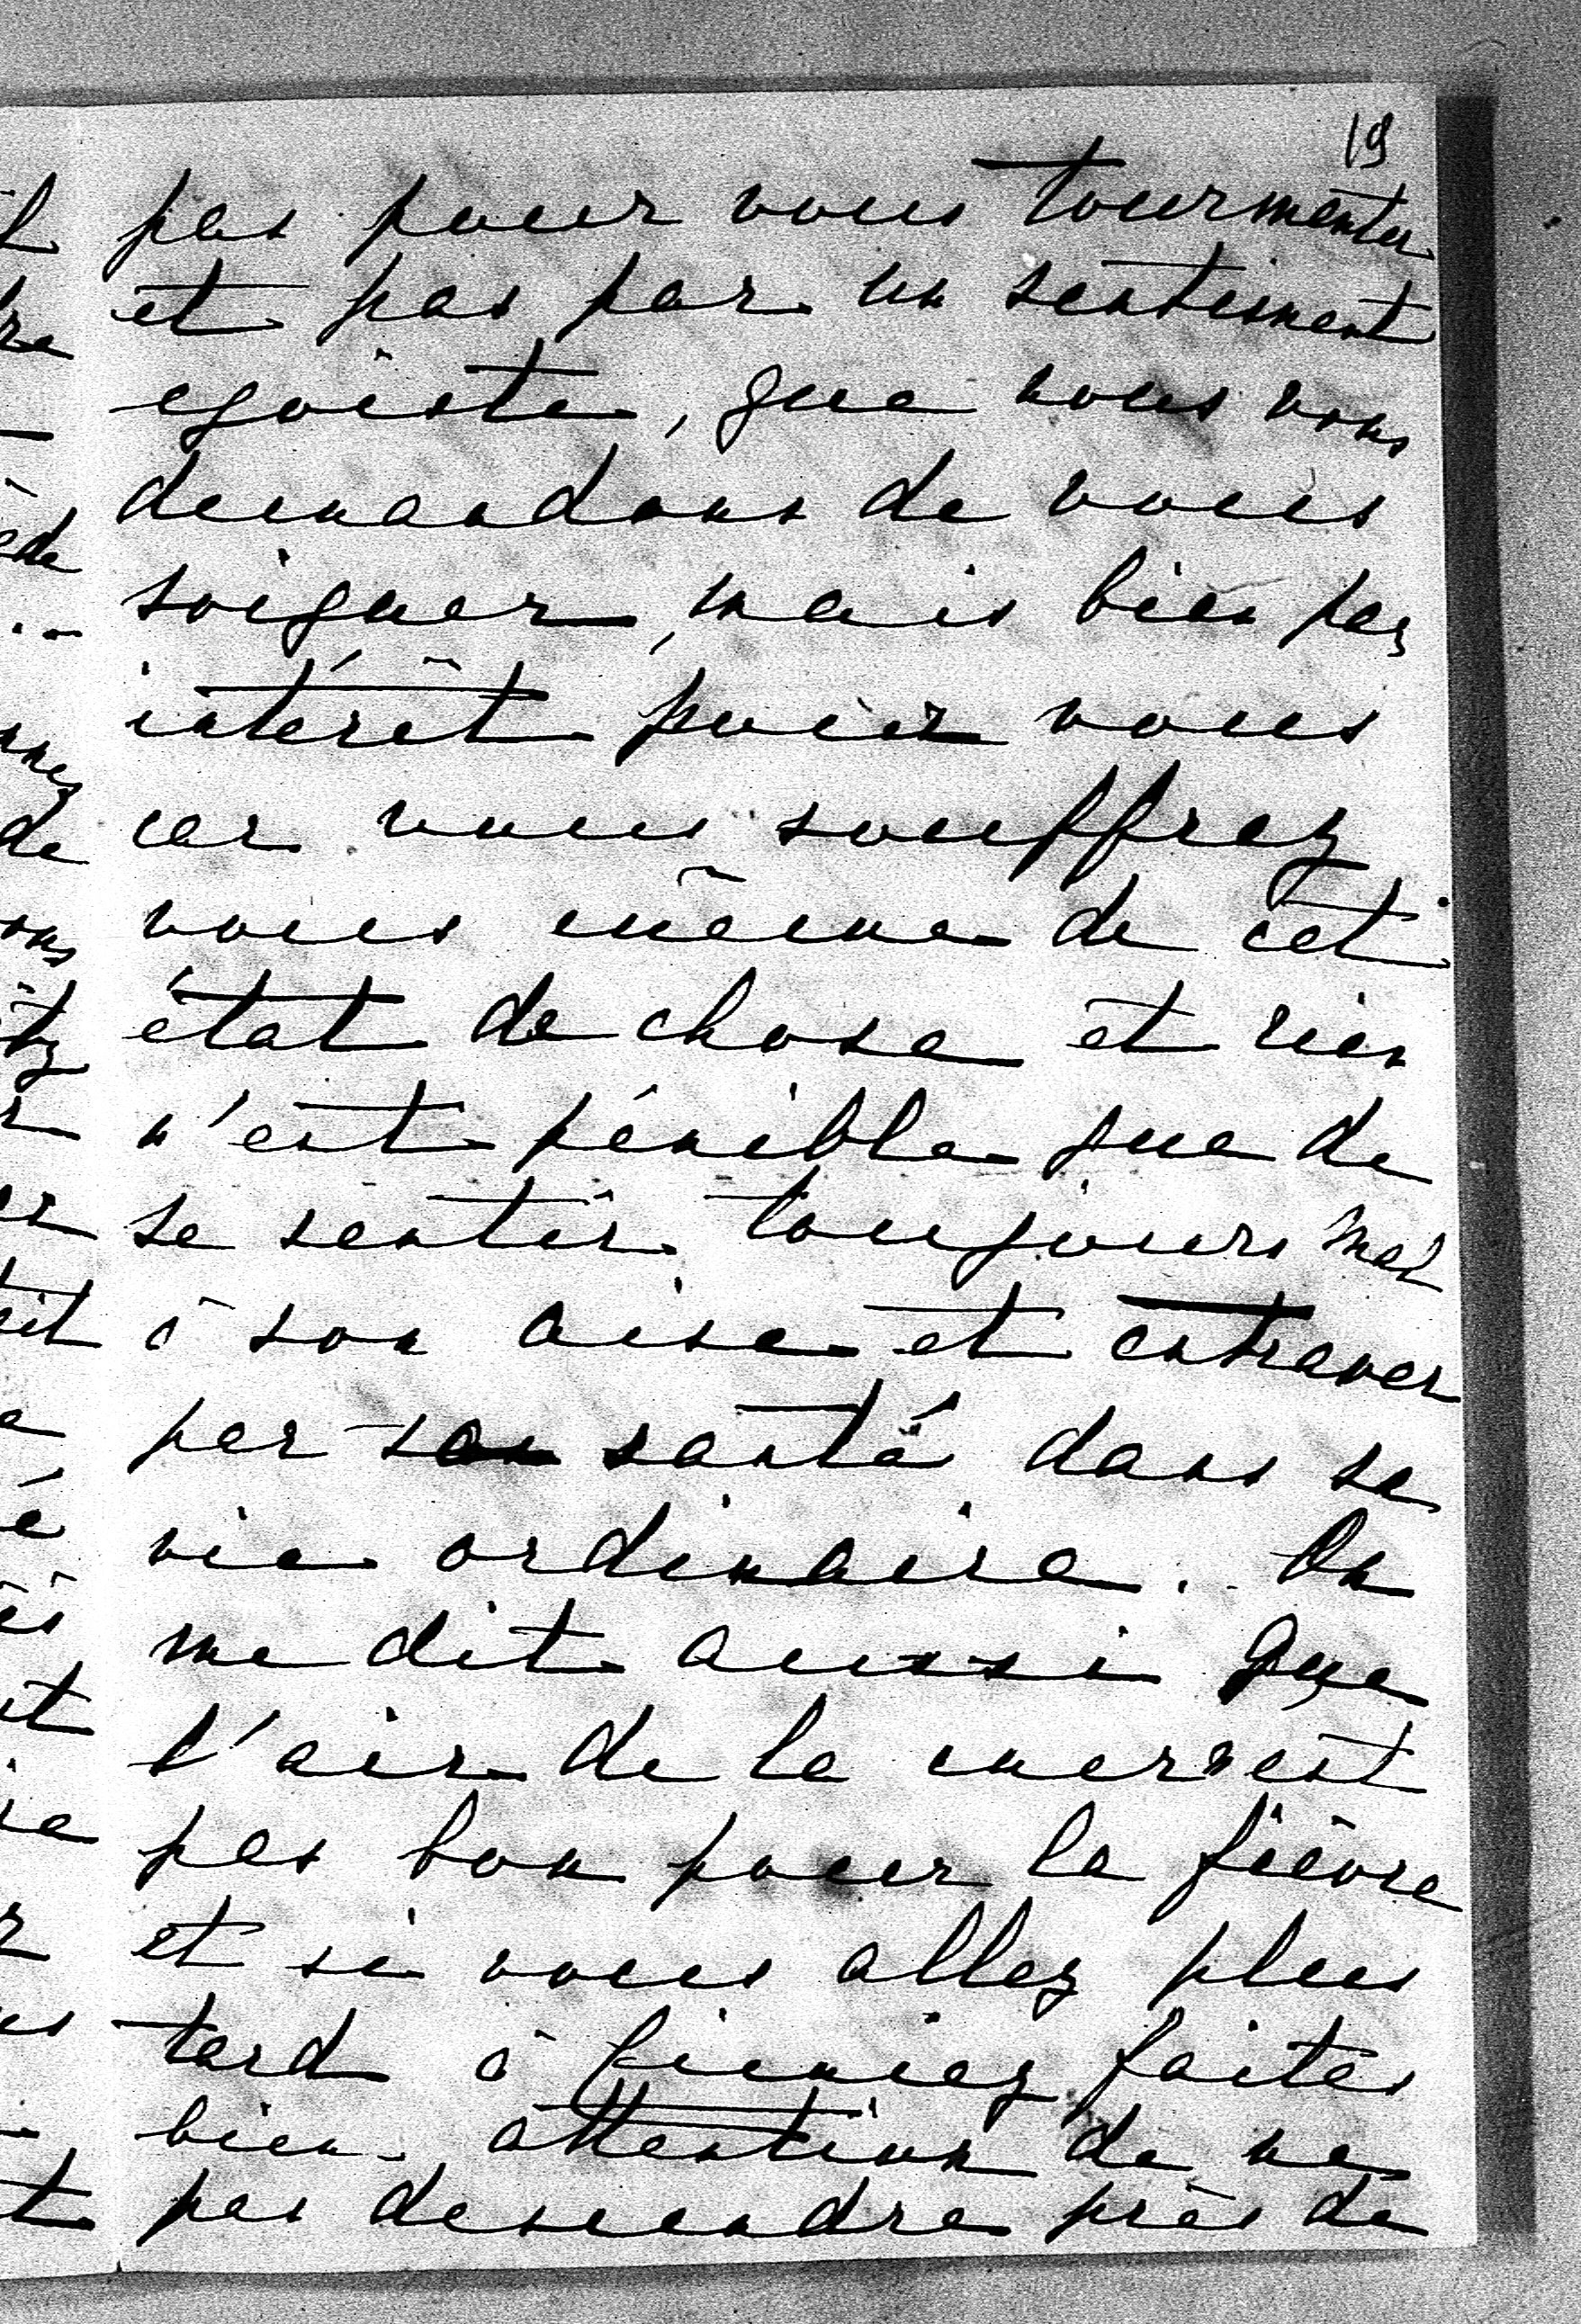 19
pas pour vous tourmenter
et pas par un sentiment
egoïste, que nous vous
demandons de vous
soigner, mais bien par
intérêt pour vous
car vous souffrez
vous même de cet
état de chose et rien
n'est pénible que de
se sentir toujours mal
à son aise et entraver
par sa santé dans sa
vie ordinaire. On
me dit aussi que
l'air de la mer n'est
pas bon pour la fièvre
et si vous allez plus
tard à faites
bien attention de ne
pas descendre près de